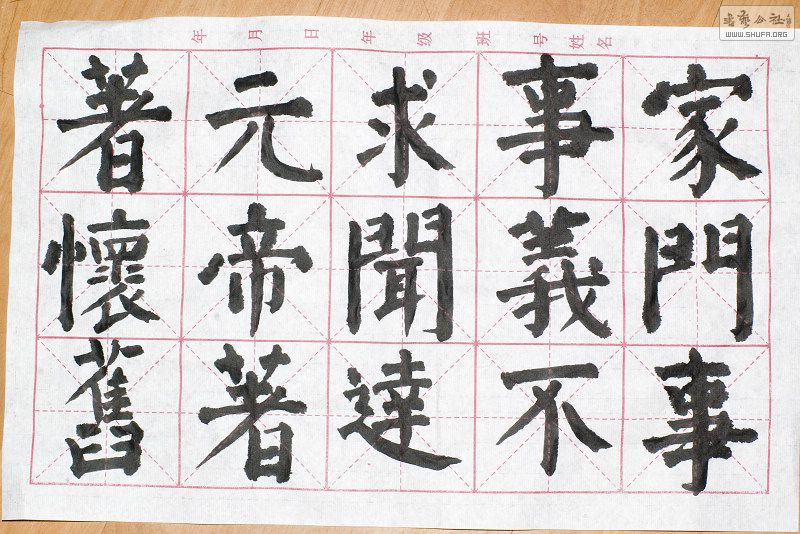 家門事
事義不
求聞達
元帝著
著懷舊
年 月 日 年 级 班 号 姓名
书艺公社
WWW.SHUFA.ORG